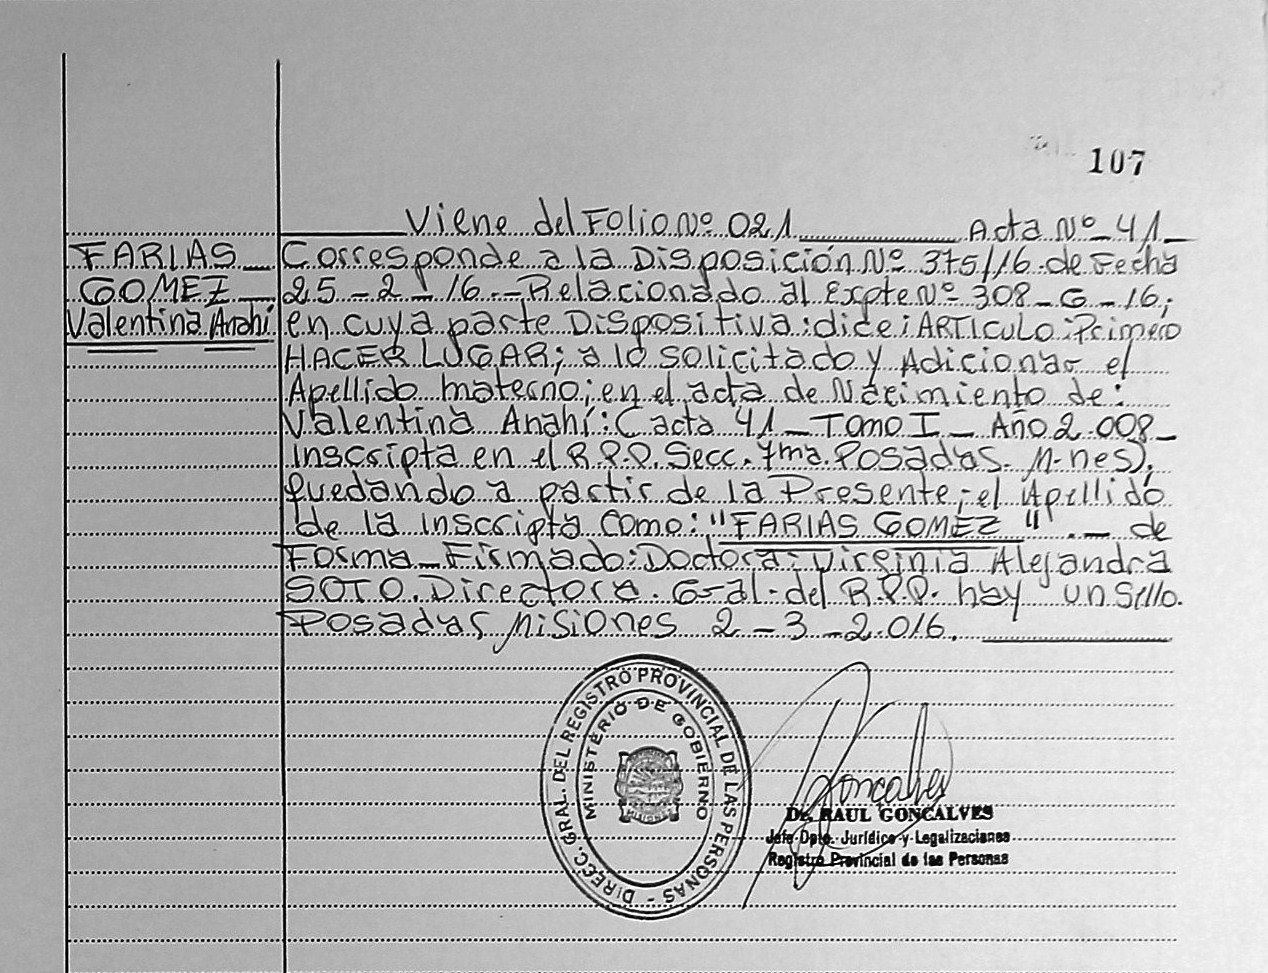 107
Viene del Folio Nº 021 Acta Nº 41
FARIAS
GOMEZ
Valentina Anahí
Corresponde a la Disposición Nº 375/16 de Fecha
25-2-16.- Relacionado al Expte Nº 308-G-16;
en cuya parte Dispositiva: dice: ARTICULO: Primero
HACER LUGAR; a lo solicitado y Adicionar el
Apellido materno; en el acta de Nacimiento de:
Valentina Anahí: (acta 41 - Tomo I - Año 2.008 -
Inscripta en el R.P.P. Secc. 7ma. Posadas. M-nes);
quedando a partir de la Presente; el Apellido
de la Inscripta Como: "FARIAS GOMEZ" .- de
Forma - Firmado: Doctora: Virginia Alejandra
SOTO. Directora. Gral. del R.P.P. hay un Sello.
Posadas Misiones 2-3-2.016.
DIRECC. GRAL. DEL REGISTRO PROVINCIAL DE LAS PERSONAS -
MINISTERIO DE GOBIERNO
MISIONES
Goncalves
Dr. RAUL GONCALVES
Jefe Dpto. Jurídico y Legalizaciones
Registro Provincial de las Personas